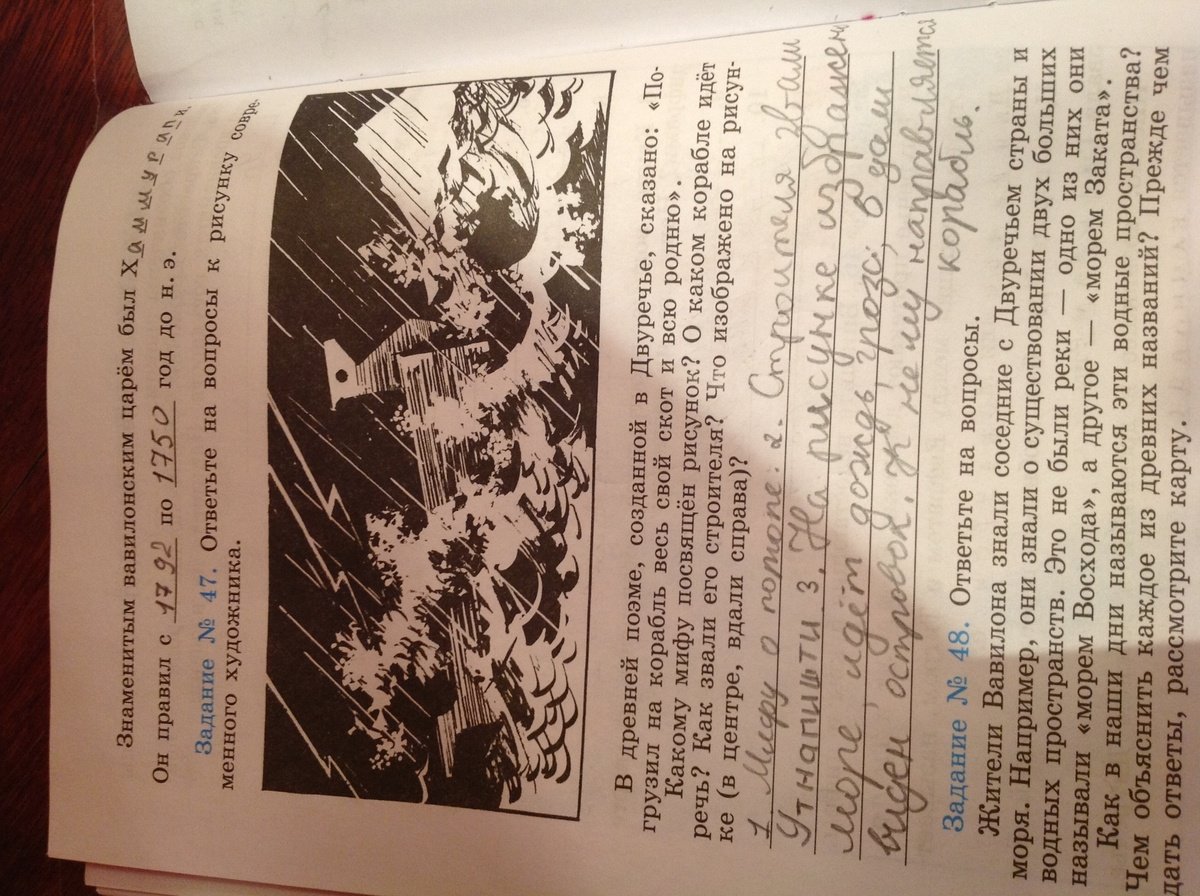 Знаменитым вавилонским царём был Хаммурапи.
Он правил с 1792 по 1750 год до н. э.
Задание № 47. Ответьте на вопросы к рисунку совре-
менного художника.
В древней поэме, созданной в Двуречье, сказано: «По-
грузил на корабль весь свой скот и всю родню».
Какому мифу посвящён рисунок? О каком корабле идёт
речь? Как звали его строителя? Что изображено на рисун-
ке (в центре, вдали справа)?
1 Мифу о потопе. 2. Строителя звали
Утнапишти 3. На рисунке изображен
море, идёт дождь, гроза; в дали
виден островок. К нему направляется
корабль.
Задание № 48. Ответьте на вопросы.
Жители Вавилона знали соседние с Двуречьем страны и
моря. Например, они знали о существовании двух больших
водных пространств. Это не были реки — одно из них они
называли «морем Восхода», а другое — «морем Заката».
Как в наши дни называются эти водные пространства?
Чем объяснить каждое из древних названий? Прежде чем
дать ответы, рассмотрите карту.